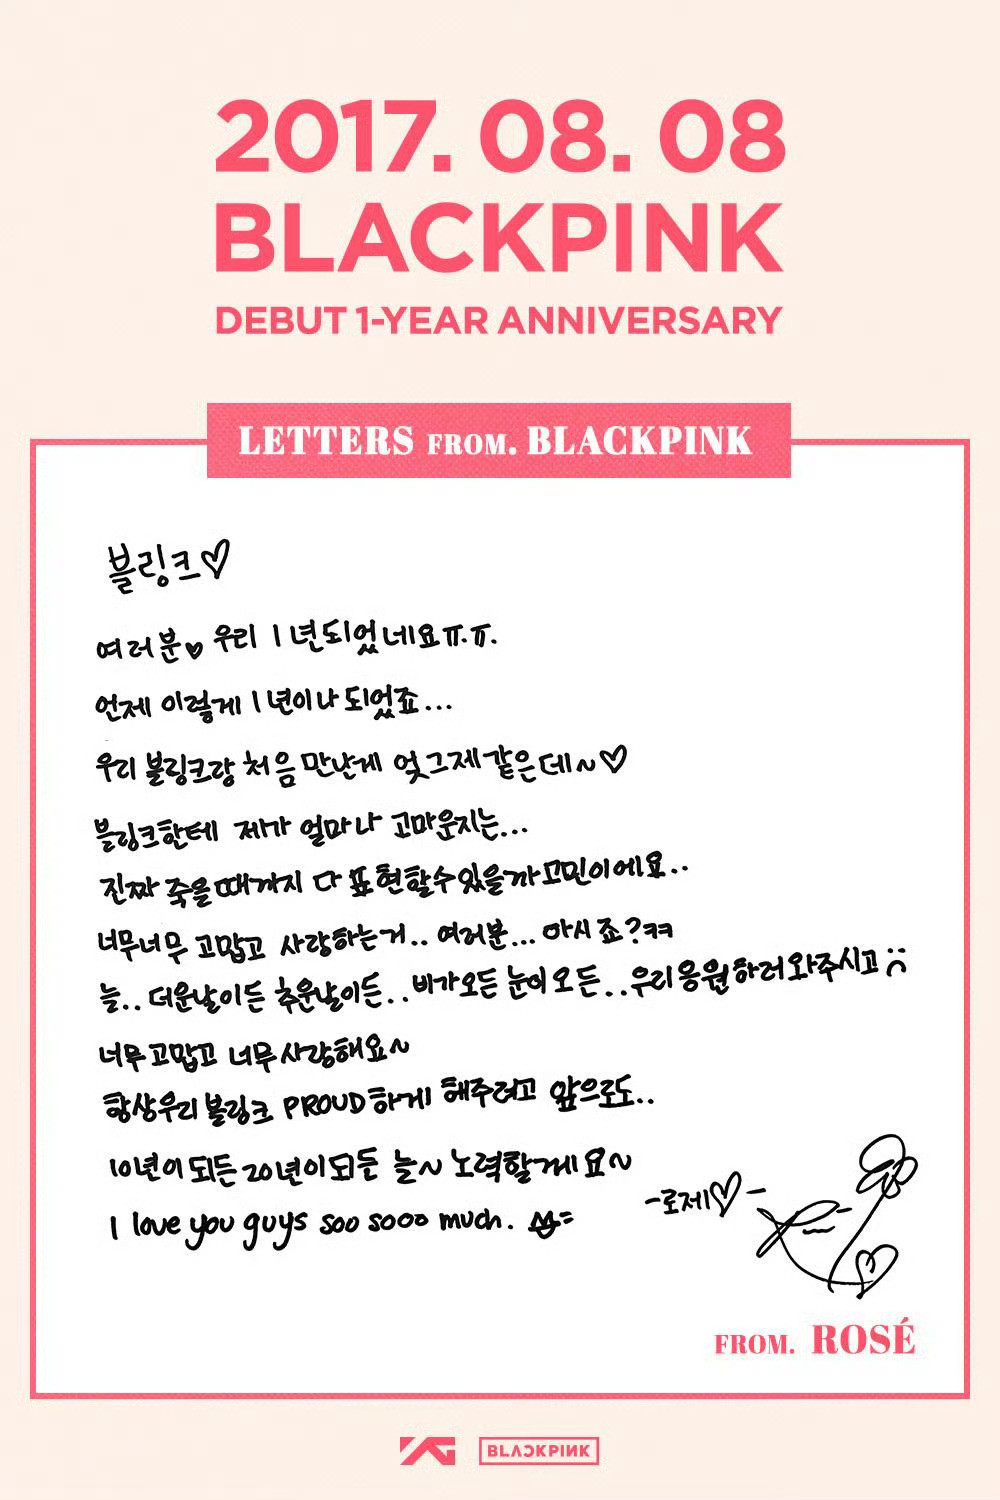 2017. 08. 08
BLACKPINK
DEBUT 1-YEAR ANNIVERSARY
LETTERS FROM. BLACKPINK
블링크♡
여러분♥ 우리 1년되었네요ㅠ.ㅠ.
언제 이렇게 1년이나 되었죠...
우리 블링크랑 처음 만난게 엊그제같은데~♡
블링크한테 제가 얼마나 고마운지는...
진짜 죽을때까지 다 표현할수있을까 고민이에요..
너무너무 고맙고 사랑하는거.. 여러분... 아시죠?ㅋㅋ
늘.. 더운날이든 추운날이든.. 비가오든 눈이오든.. 우리응원하러와주시고 :(
너무고맙고 너무사랑해요~
항상우리블링크 PROUD하게 해주려고 앞으로도..
10년이되든 20년이되든 늘~ 노력할게요~
I love you guys soo sooo much.
-로제♡-
FROM. ROSÉ
YG BLACKPINK